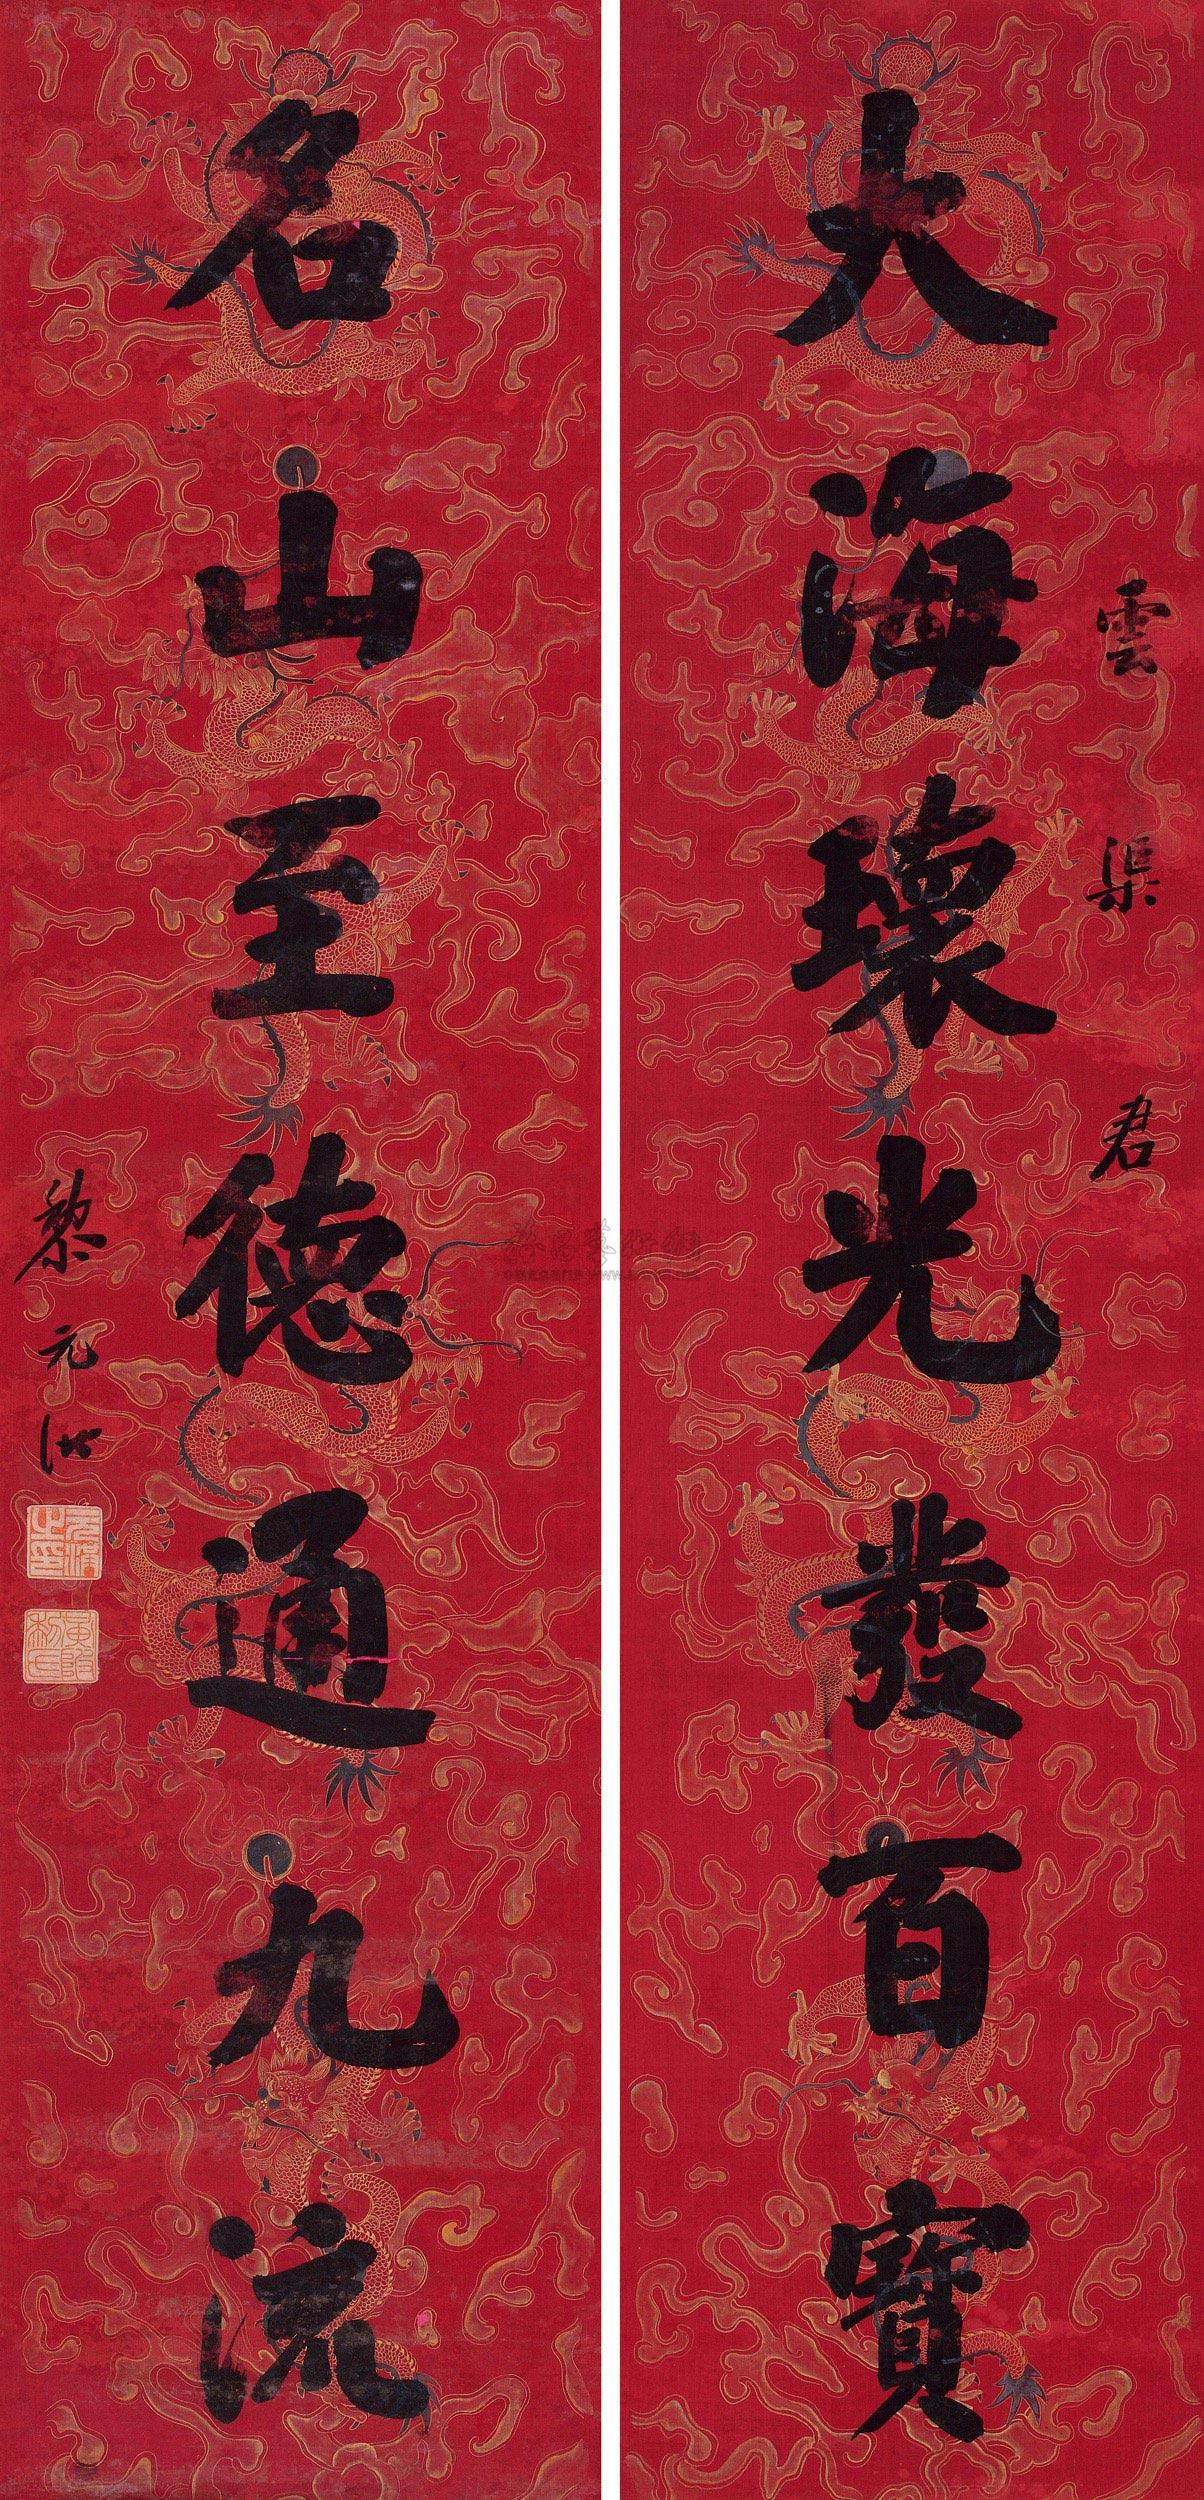 雲渠君
大海瓌光發百寶
名山至德通九流
黎元洪
元洪之印